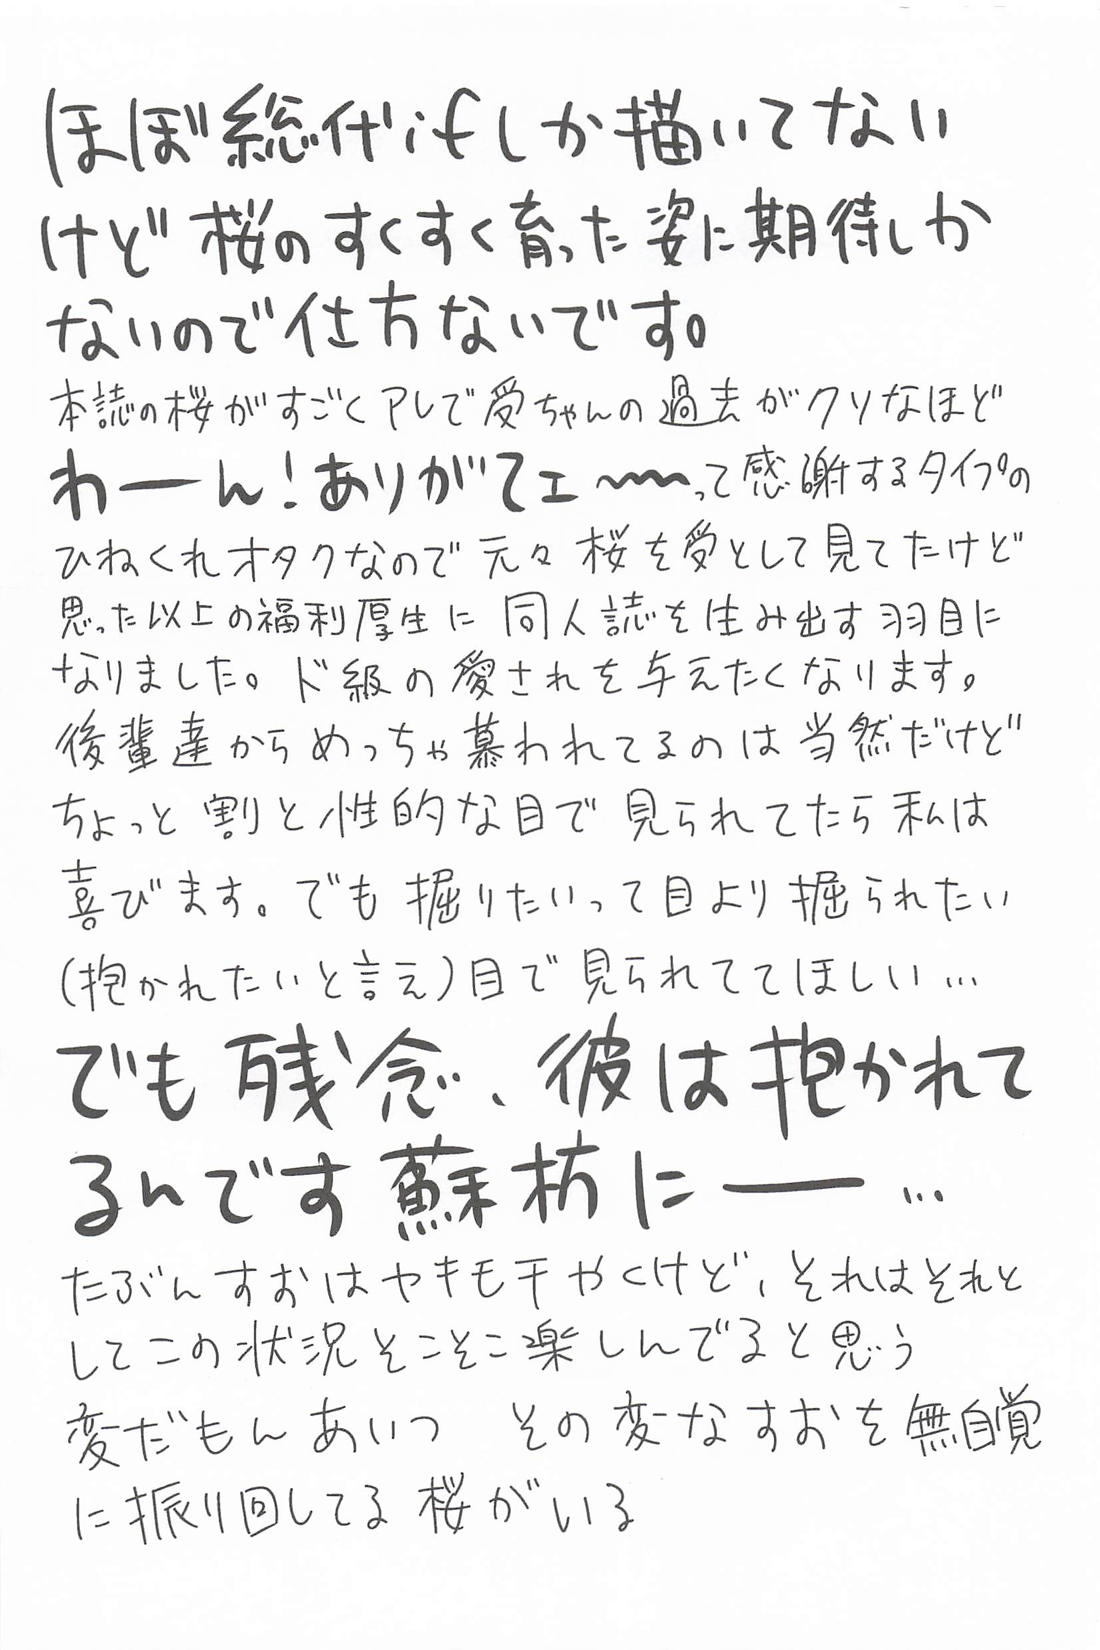 ほぼ総代ifしか描いてない
けど桜のすくすく育った姿に期待しか
ないので仕方ないです。
本誌の桜がすごくアレで受ちゃんの過去がクソなほど
わーん!ありがてェ〜〜って感謝するタイプの
ひねくれオタクなので元々桜を受として見てたけど
思った以上の福利厚生に同人誌を生み出す羽目に
なりました。ド級の愛されを与えたくなります。
後輩達からめっちゃ慕われてるのは当然だけど
ちょっと割と性的な目で見られてたら私は
喜びます。でも掘りたいって目より掘られたい
(抱かれたいと言え)目で見られててほしい…
でも残念、彼は抱かれて
るんです蘇枋に――…
たぶんすおはヤキモチやくけど、それはそれと
してこの状況そこそこ楽しんでると思う
変だもんあいつ その変なすおを無自覚
に振り回してる桜がいる